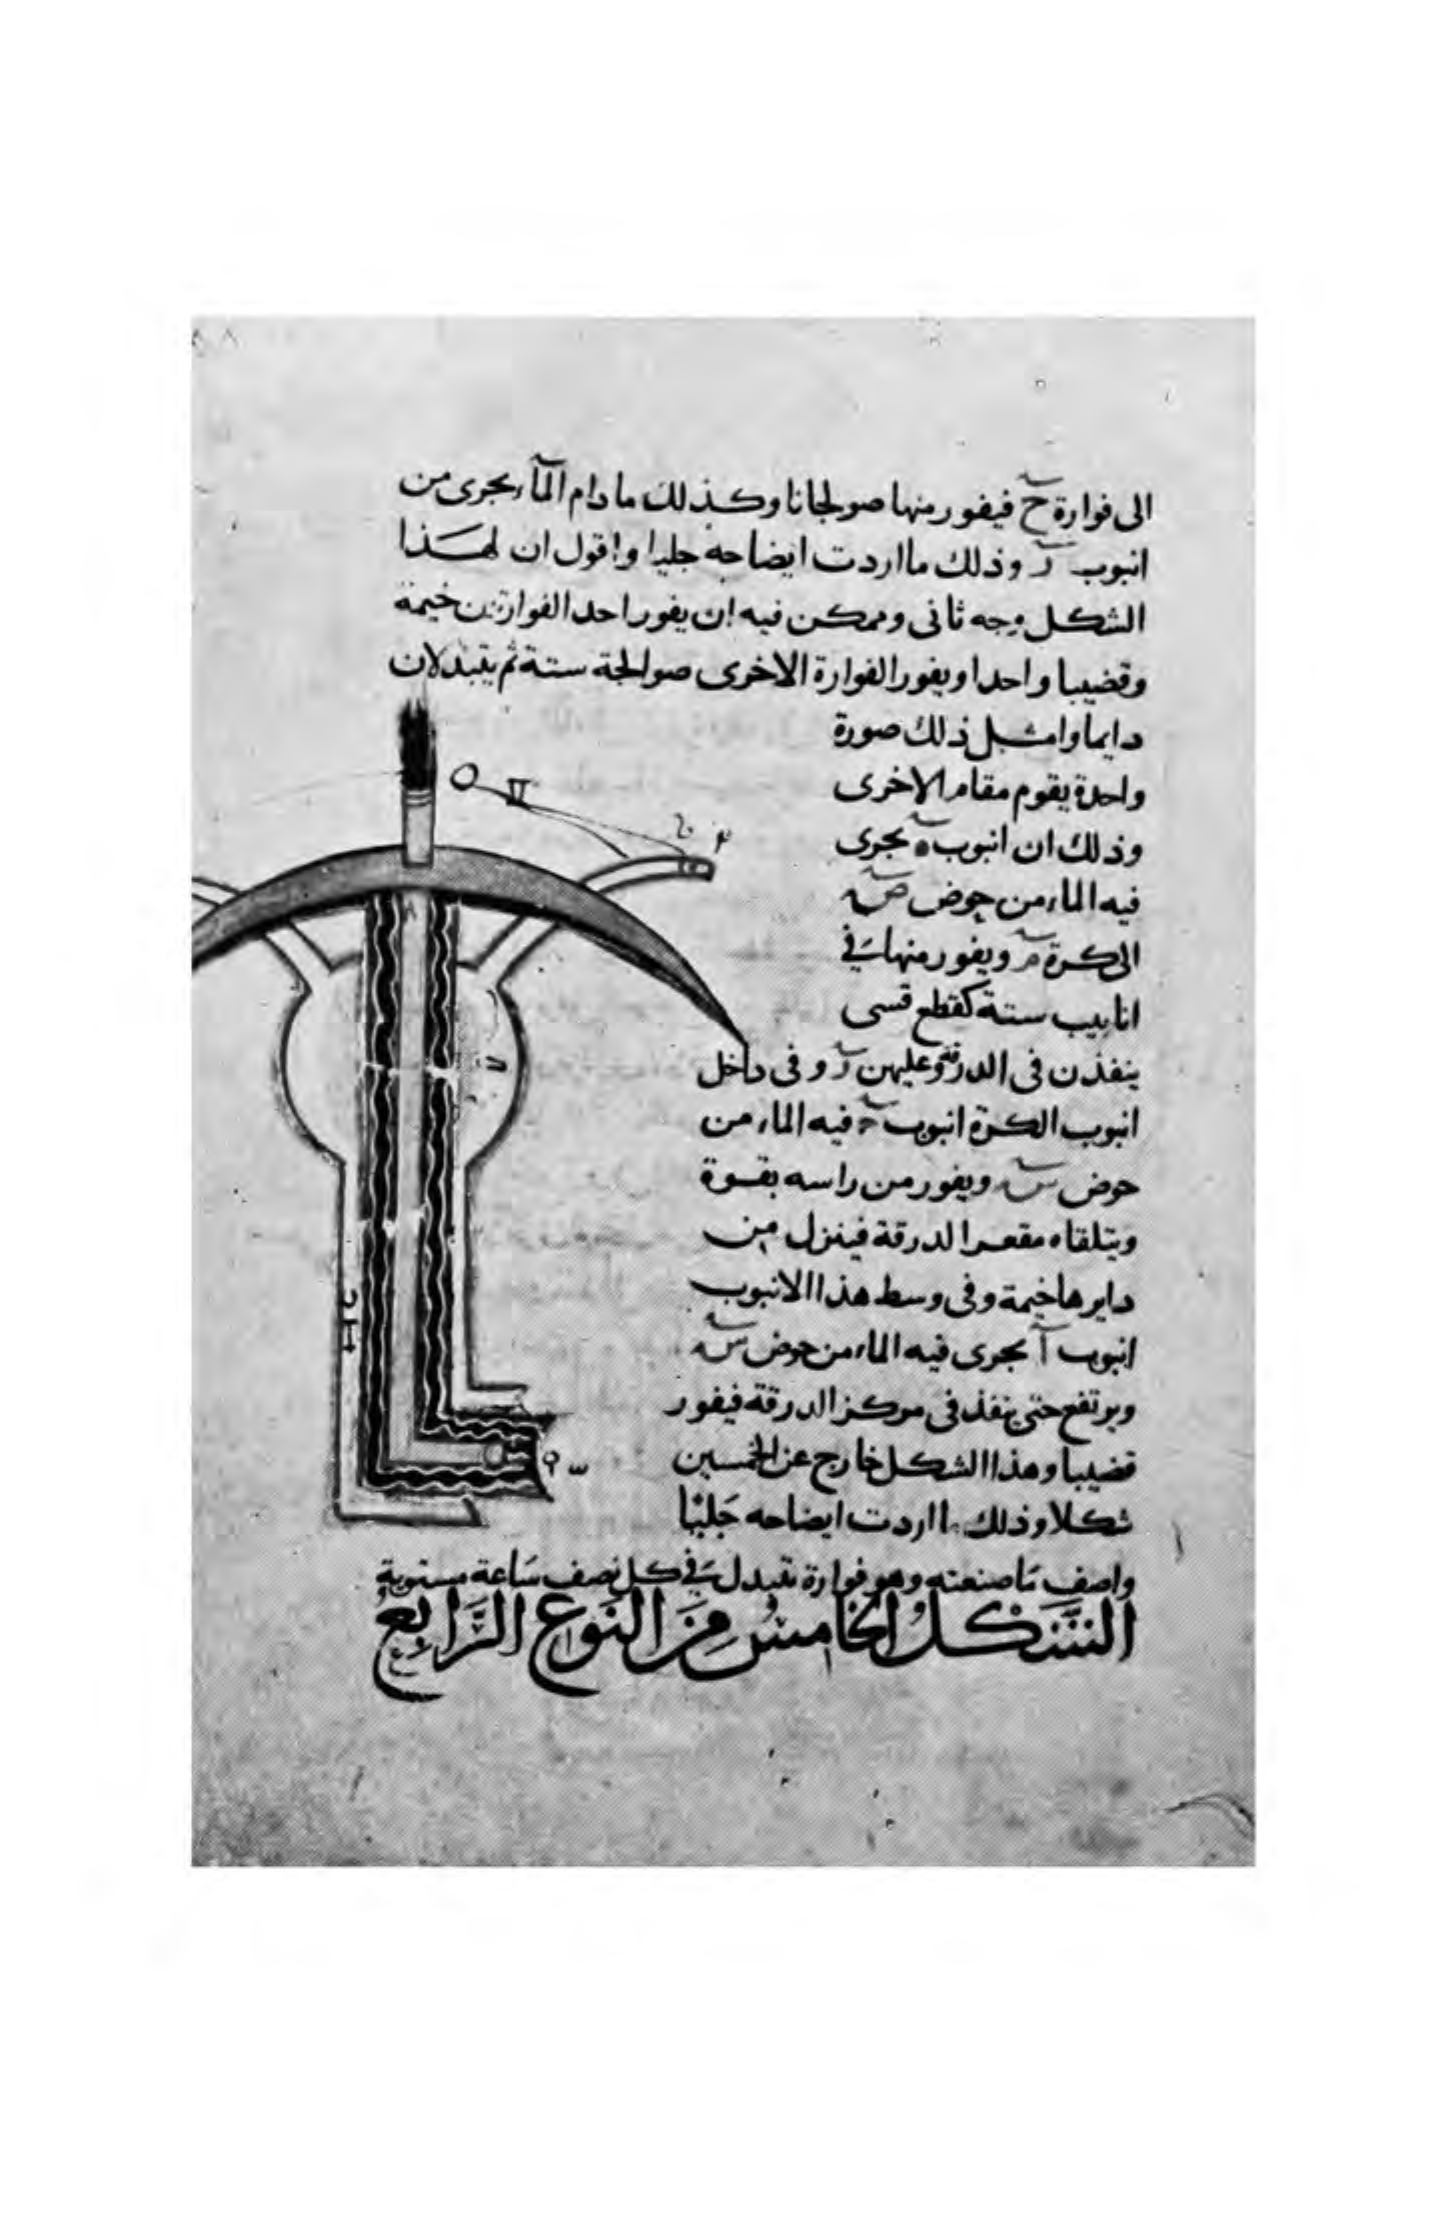 الى فوارة ح فيفور منها صولجانا وكذلك ما دام الماء يجرى من
انبوب ر وذلك ما اردت ايضاحه جليا واقول ان لهذا
الشكل وجه ثانى وممكن فيه ان يفور احد الفوارتين خيمة
وقضيبا واحدا ويفور الفوارة الاخرى صوالجة ستة ثم يتبدلان
دايما وامثل ذلك صورة
واحدة يقوم مقام الاخرى
وذلك ان انبوب ه يجرى
فيه الماء من حوض ص
الى كرة م ويفور منها فى
انابيب ستة كقطع قسى
ينفذن فى الدرقة وعليهن ر وفى داخل
انبوب الكرة انبوب ح فيه الماء من
حوض س ويفور من راسه بقوة
ويتلقاه مقعر الدرقة فينزل من
دايرها خيمة وفى وسط هذا الانبوب
انبوب آ يجرى فيه الماء من حوض س
ويرتفع حتى ينفذ فى مركز الدرقة فيفور
قضيبا وهذا الشكل خارج عن الخمسين
شكلا وذلك ما اردت ايضاحه جَليّا
واصف مَا صنعته وهو فوارة تتبدل فى كل نصف سَاعة مستوية
الشَّكلُ الخامسُ مِنَ النَوع الرَّابِع